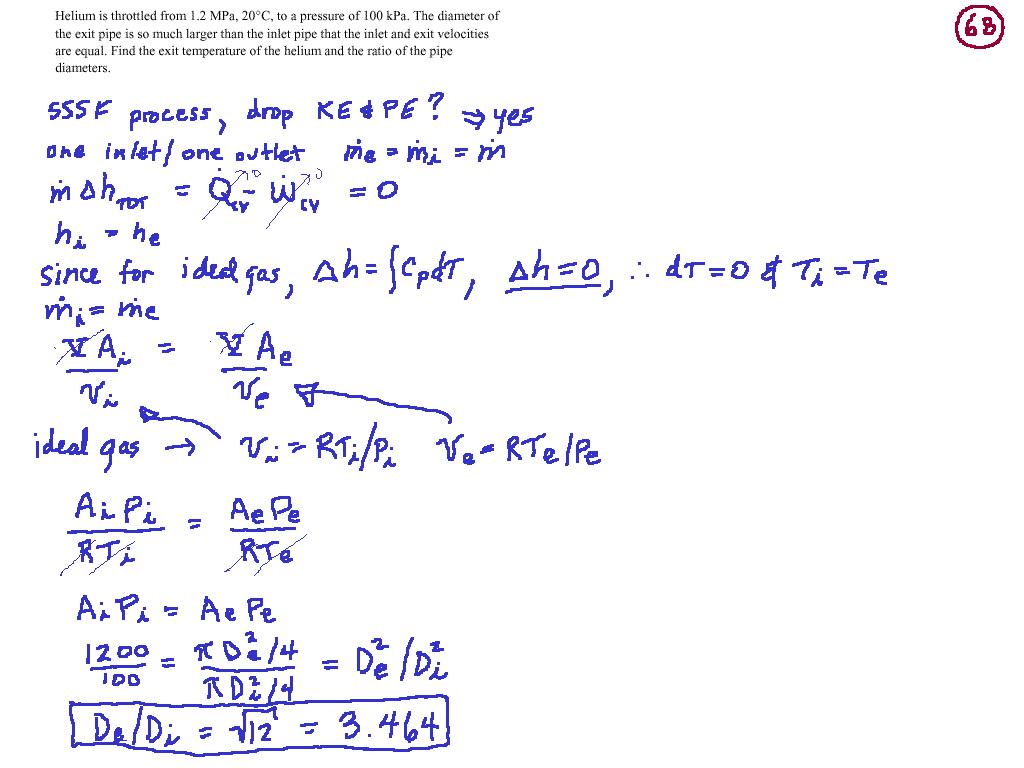 Helium is throttled from 1.2 MPa, 20°C, to a pressure of 100 kPa. The diameter of
the exit pipe is so much larger than the inlet pipe that the inlet and exit velocities
are equal. Find the exit temperature of the helium and the ratio of the pipe
diameters.
68
SSSF process, drop KE & PE? ⇒ yes
one inlet/one outlet ṁe = ṁi = ṁ
ṁ Δh_TOT = Q̇_CV →0 - Ẇ_CV →0 = 0
hi = he
since for ideal gas, Δh = ∫CpdT, Δh = 0, ∴ dT = 0 & Ti = Te
ṁi = ṁe
V Ai / vi = V Ae / ve
ideal gas → vi = RTi/Pi ve = RTe/Pe
Ai Pi / RTi = Ae Pe / RTe
Ai Pi = Ae Pe
1200/100 = (π De²/4)/(π Di²/4) = De²/Di²
De/Di = √12 = 3.464